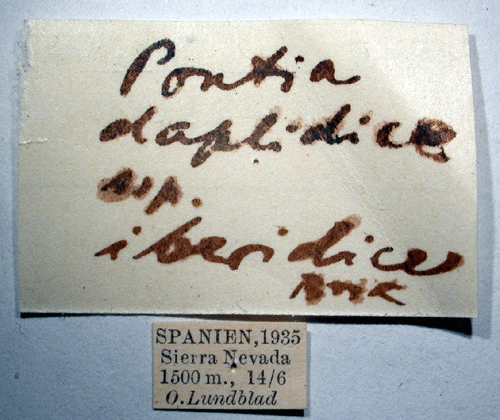 Pontia
daplidice
ssp.
iberidice
SPANIEN, 1935
Sierra Nevada
1500 m., 14/6
O. Lundblad